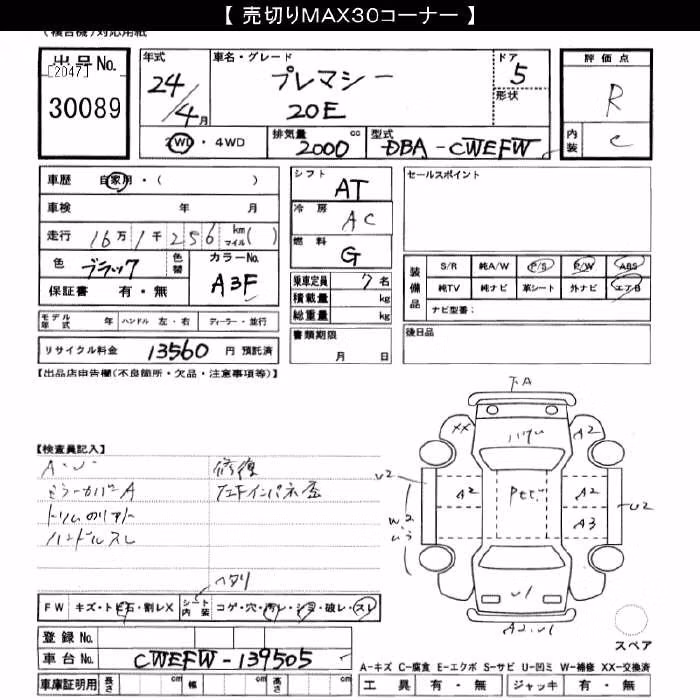 【 売切りMAX30コーナー 】
出品No.
[2047]
30089
年式
24/4月
車名・グレード
プレマシー
20E
ドア
5
形状
評価点
R
内装
C
2WD・4WD
排気量
2000
cc
型式
DBA-CWEFW
車歴 自家用・( )
車検 年 月
走行 16万1千256 km マイル( )
色 ブラック
色替
カラーNo.
A3F
保証書 有・無
シフト
AT
冷房
AC
燃料
G
乗車定員 7名
積載量 kg
総重量 kg
書類期限
月 日
セールスポイント
装備品
S/R 純A/W P/S P/W ABS
純TV 純ナビ 革シート 外ナビ エアB
ナビ型番:
後日品
モデル年式 年 ハンドル 左・右 ディーラー・並行
リサイクル料金 13560 円 預託済
【出品店申告欄(不良箇所・欠品・注意事項等)】
【検査員記入】
A・U
ミラーカバーA
ハンドルスレ
修復
ヘタリ
FW キズ・トビ石・割レX シート内装 コゲ・穴・汚レ・シミ・破レ・スレ
登録No.
車台No. CWEFW-139505
車庫証明用 長さ cm 幅 cm 高さ cm
XX
A2
U2
A2
A2
A3
U2
W2
U1
スペア
A-キズ C-腐食 E-エクボ S-サビ U-凹ミ W-補修 XX-交換済
工具 有・無 ジャッキ 有・無